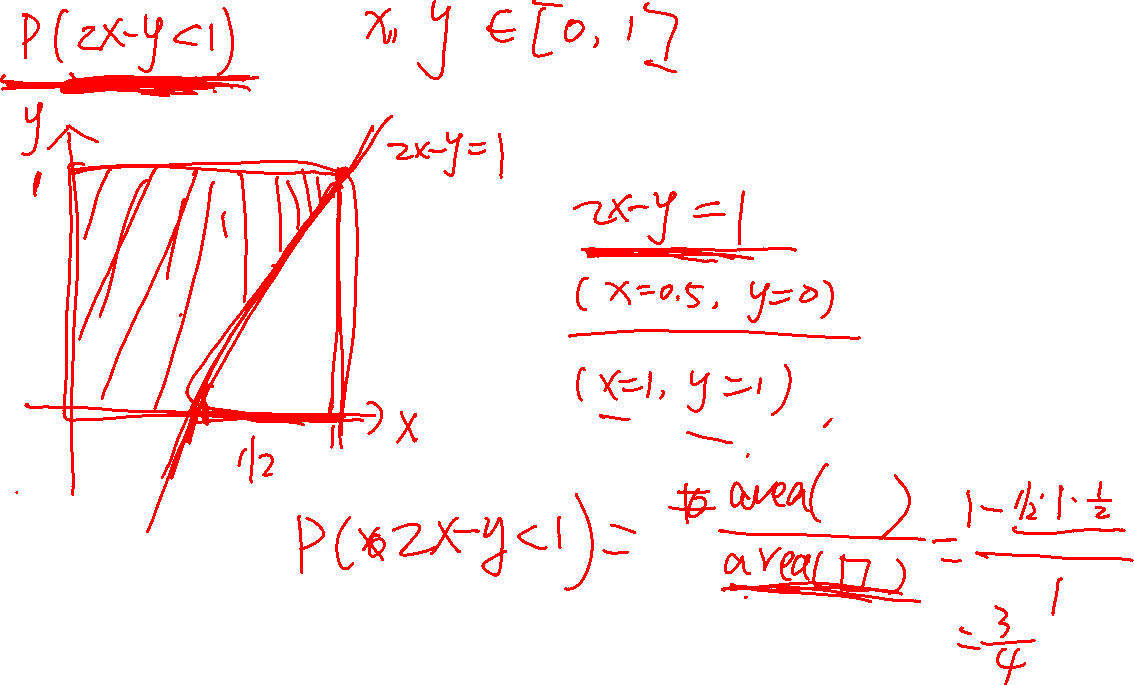 P(2x-y<1)
x, y ∈ [0, 1]
y
1
2x-y=1
2x-y=1
(x=0.5, y=0)
(x=1, y=1)
x
1/2
P(2x-y<1) = area( ) / area(□) = (1 - 1/2 · 1 · 1/2) / 1
= 3/4